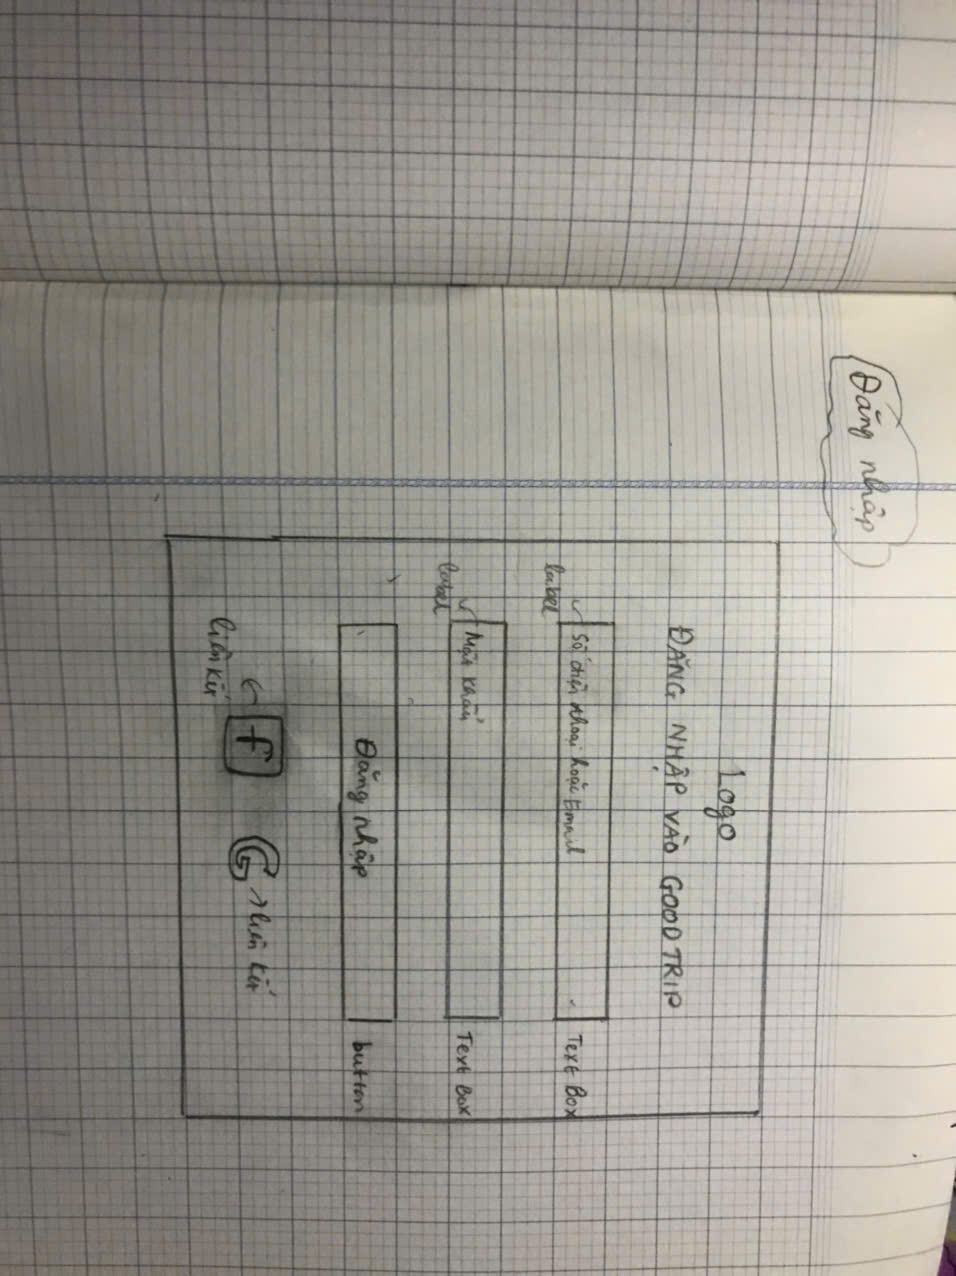 Đăng nhập
Logo
ĐĂNG NHẬP VÀO GOODTRIP
label
Số điện thoại hoặc Email
Text Box
label
Mật khẩu
Text Box
Đăng nhập
button
liên kết
f
G
liên kết